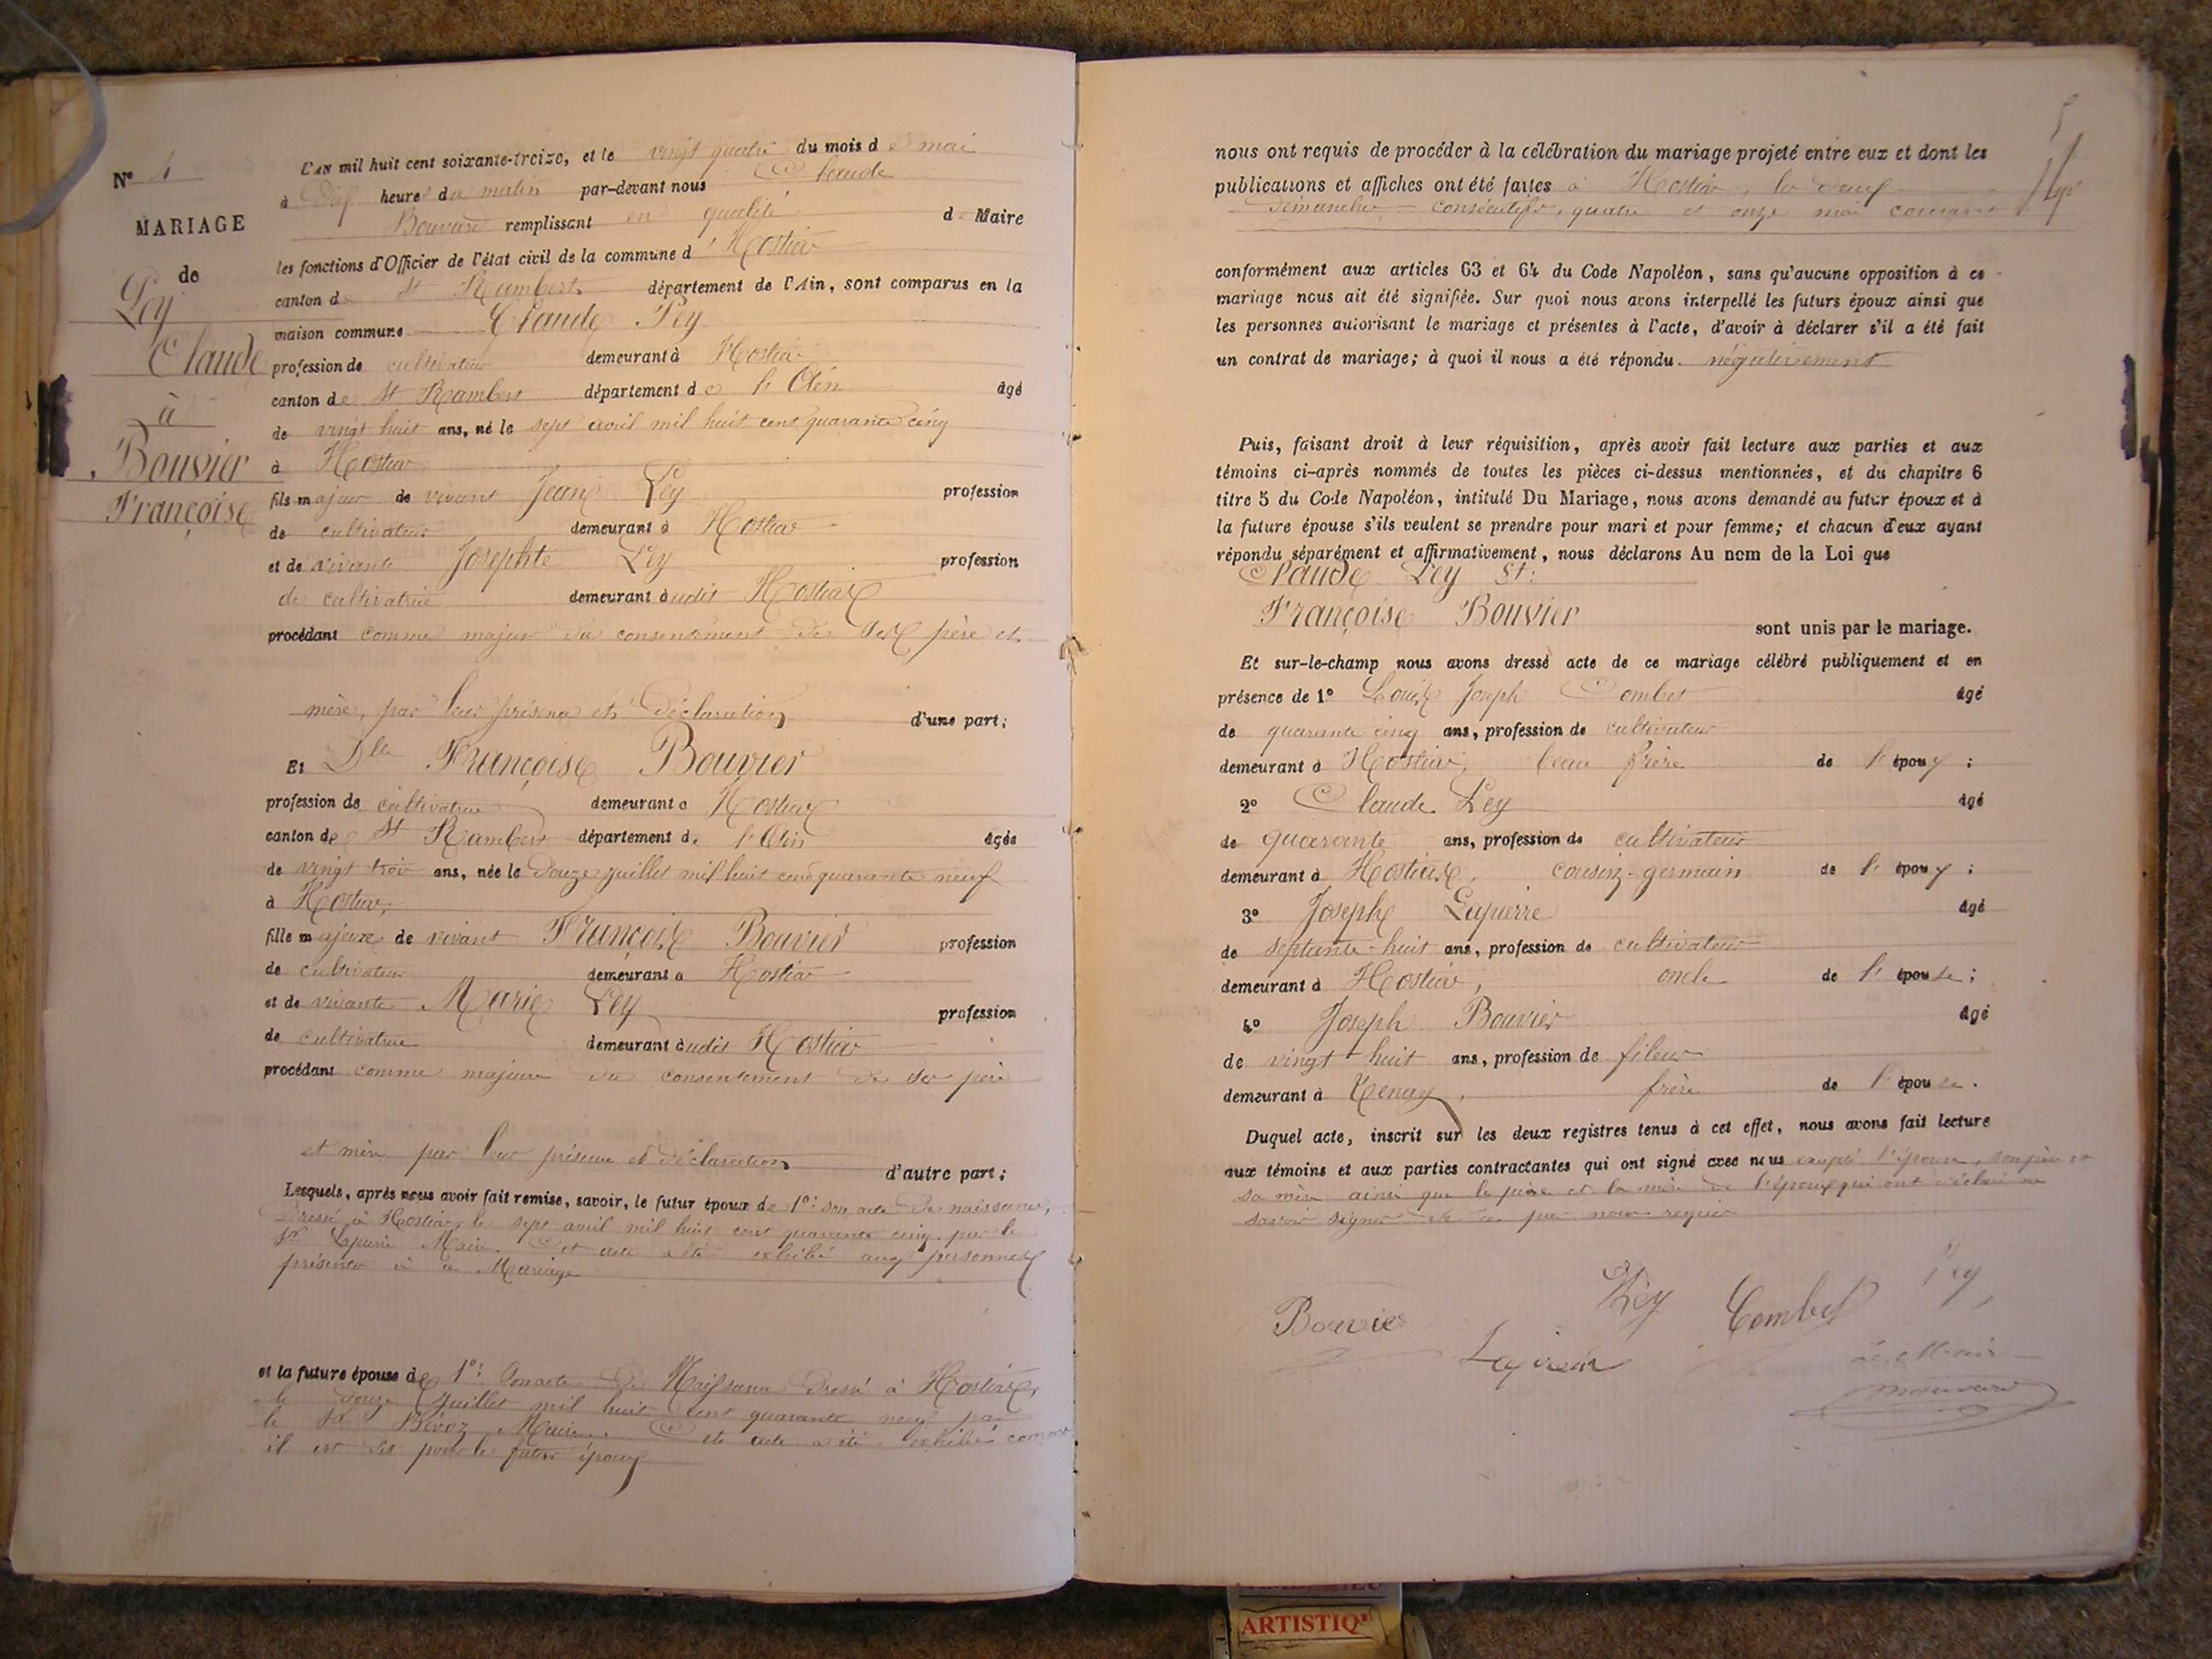 Nº 4
MARIAGE
de
Ley
Claude
à
Bouvier
Françoise
L'AN mil huit cent soixante-treize, et le vingt quatre du mois de mai
à dix heures du matin par-devant nous Claude
Bouvard remplissant en qualité de Maire
les fonctions d'Officier de l'état civil de la commune d'Hostiaz
canton de St Rambert département de l'Ain, sont comparus en la
maison commune Claude Ley
profession de cultivateur demeurant à Hostiaz
canton de St Rambert département de l'Ain âgé
de vingt huit ans, né le sept avril mil huit cent quarante cinq
à Hostiaz
fils majeur de vivant Jean Ley profession
de cultivateur demeurant à Hostiaz
et de vivante Josephte Ley profession
de cultivatrice demeurant audit Hostiaz
procédant comme majeur du consentement de ses père et
mère, par leur présence et déclaration d'une part;
Et Dlle Françoise Bouvier
profession de cultivatrice demeurant à Hostiaz
canton de St Rambert département de l'Ain âgée
de vingt trois ans, née le douze juillet mil huit cent quarante neuf
à Hostiaz,
fille majeure de vivant François Bouvier profession
de cultivateur demeurant à Hostiaz
et de vivante Marie Ley profession
de cultivatrice demeurant audit Hostiaz
procédant comme majeure du consentement de ses père
et mère par leur présence et déclaration d'autre part;
Lesquels, après nous avoir fait remise, savoir, le futur époux de 1º: son acte de naissance,
dressé à Hostiaz, le sept avril mil huit cent quarante cinq par le
Sr Maire. Cet acte a été exhibé aux personnes
présentes à ce Mariage
et la future épouse de 1º: Son acte de Naissance dressé à Hostiaz,
le douze Juillet mil huit cent quarante neuf par
le Sr Maire. Cet acte a été exhibé comme
il est dit pour le futur époux
5
nous ont requis de procéder à la célébration du mariage projeté entre eux et dont les
publications et affiches ont été faites à Hostiaz, les deux
dimanches consécutifs, quatre et onze mai courant
conformément aux articles 63 et 64 du Code Napoléon, sans qu'aucune opposition à ce
mariage nous ait été signifiée. Sur quoi nous avons interpellé les futurs époux ainsi que
les personnes autorisant le mariage et présentes à l'acte, d'avoir à déclarer s'il a été fait
un contrat de mariage; à quoi il nous a été répondu. négativement
Puis, faisant droit à leur réquisition, après avoir fait lecture aux parties et aux
témoins ci-après nommés de toutes les pièces ci-dessus mentionnées, et du chapitre 6
titre 5 du Code Napoléon, intitulé Du Mariage, nous avons demandé au futur époux et à
la future épouse s'ils veulent se prendre pour mari et pour femme; et chacun d'eux ayant
répondu séparément et affirmativement, nous déclarons Au nom de la Loi que
Claude Ley et:
Françoise Bouvier sont unis par le mariage.
Et sur-le-champ nous avons dressé acte de ce mariage célébré publiquement et en
présence de 1º Louis Joseph Combet âgé
de quarante cinq ans, profession de cultivateur
demeurant à Hostiaz, beau frère de l'époux;
2º Claude Ley âgé
de quarante ans, profession de cultivateur
demeurant à Hostiaz, cousin-germain de l'époux;
3º Joseph Lapierre âgé
de septante-huit ans, profession de cultivateur
demeurant à Hostiaz, oncle de l'épouse;
4º Joseph Bouvier âgé
de vingt huit ans, profession de fileur
demeurant à Tenay, frère de l'épouse.
Duquel acte, inscrit sur les deux registres tenus à cet effet, nous avons fait lecture
aux témoins et aux parties contractantes qui ont signé avec nous excepté l'épouse, son père et
sa mère ainsi que le père et la mère de l'époux qui ont déclaré ne
savoir signer de ce par nous requis
Bouvier
Ley
Combet
Ley
Le Maire
Bouvard
ARTISTIQ